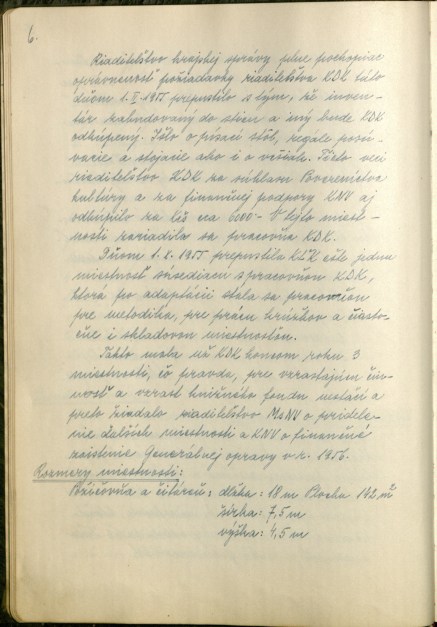 6.
Riaditeľstvo krajskej správy plne pochopiac
oprávnenosť požiadavky riaditeľstva KDK túto
dňom 1. X 1955 prepustilo s tým, že inven-
tár zabudovaný do stien a iný bude KDK
odkúpený. Išlo o písací stôl, regále posú-
vacie a stojacie ako i o vešiak. Tieto veci
riaditeľstvo KDK za súhlasu Povereníctva
kultúry a za finančnej podpory KNV aj
odkúpilo za Kčs 6000.- V tejto miest-
nosti zariadila sa pracovňa KDK.
Dňom 1. X. 1955 prepustila KĽK ešte jednu
miestnosť súsediacu s pracovňou KDK,
ktorá po adaptácii stala sa pracovňou
pre metodika, pre prácu krúžkov a čiasto-
čne i skladovou miestnosťou.
Takto mala už KDK koncom roku 3
miestnosti, čo pravda, pre vzrastajúcu čin-
nosť a vzrast knižného fondu nestačí a
preto žiadalo riaditeľstvo MsNV o pridele-
nie ďalších miestností a KNV o finančné
zaistenie Generálnej opravy v r. 1956.
Rozmery miestností:
Požičovňa a čitáreň: dĺžka: 18 m Plocha 142 m²
šírka: 7,5 m
výška: 4,5 m